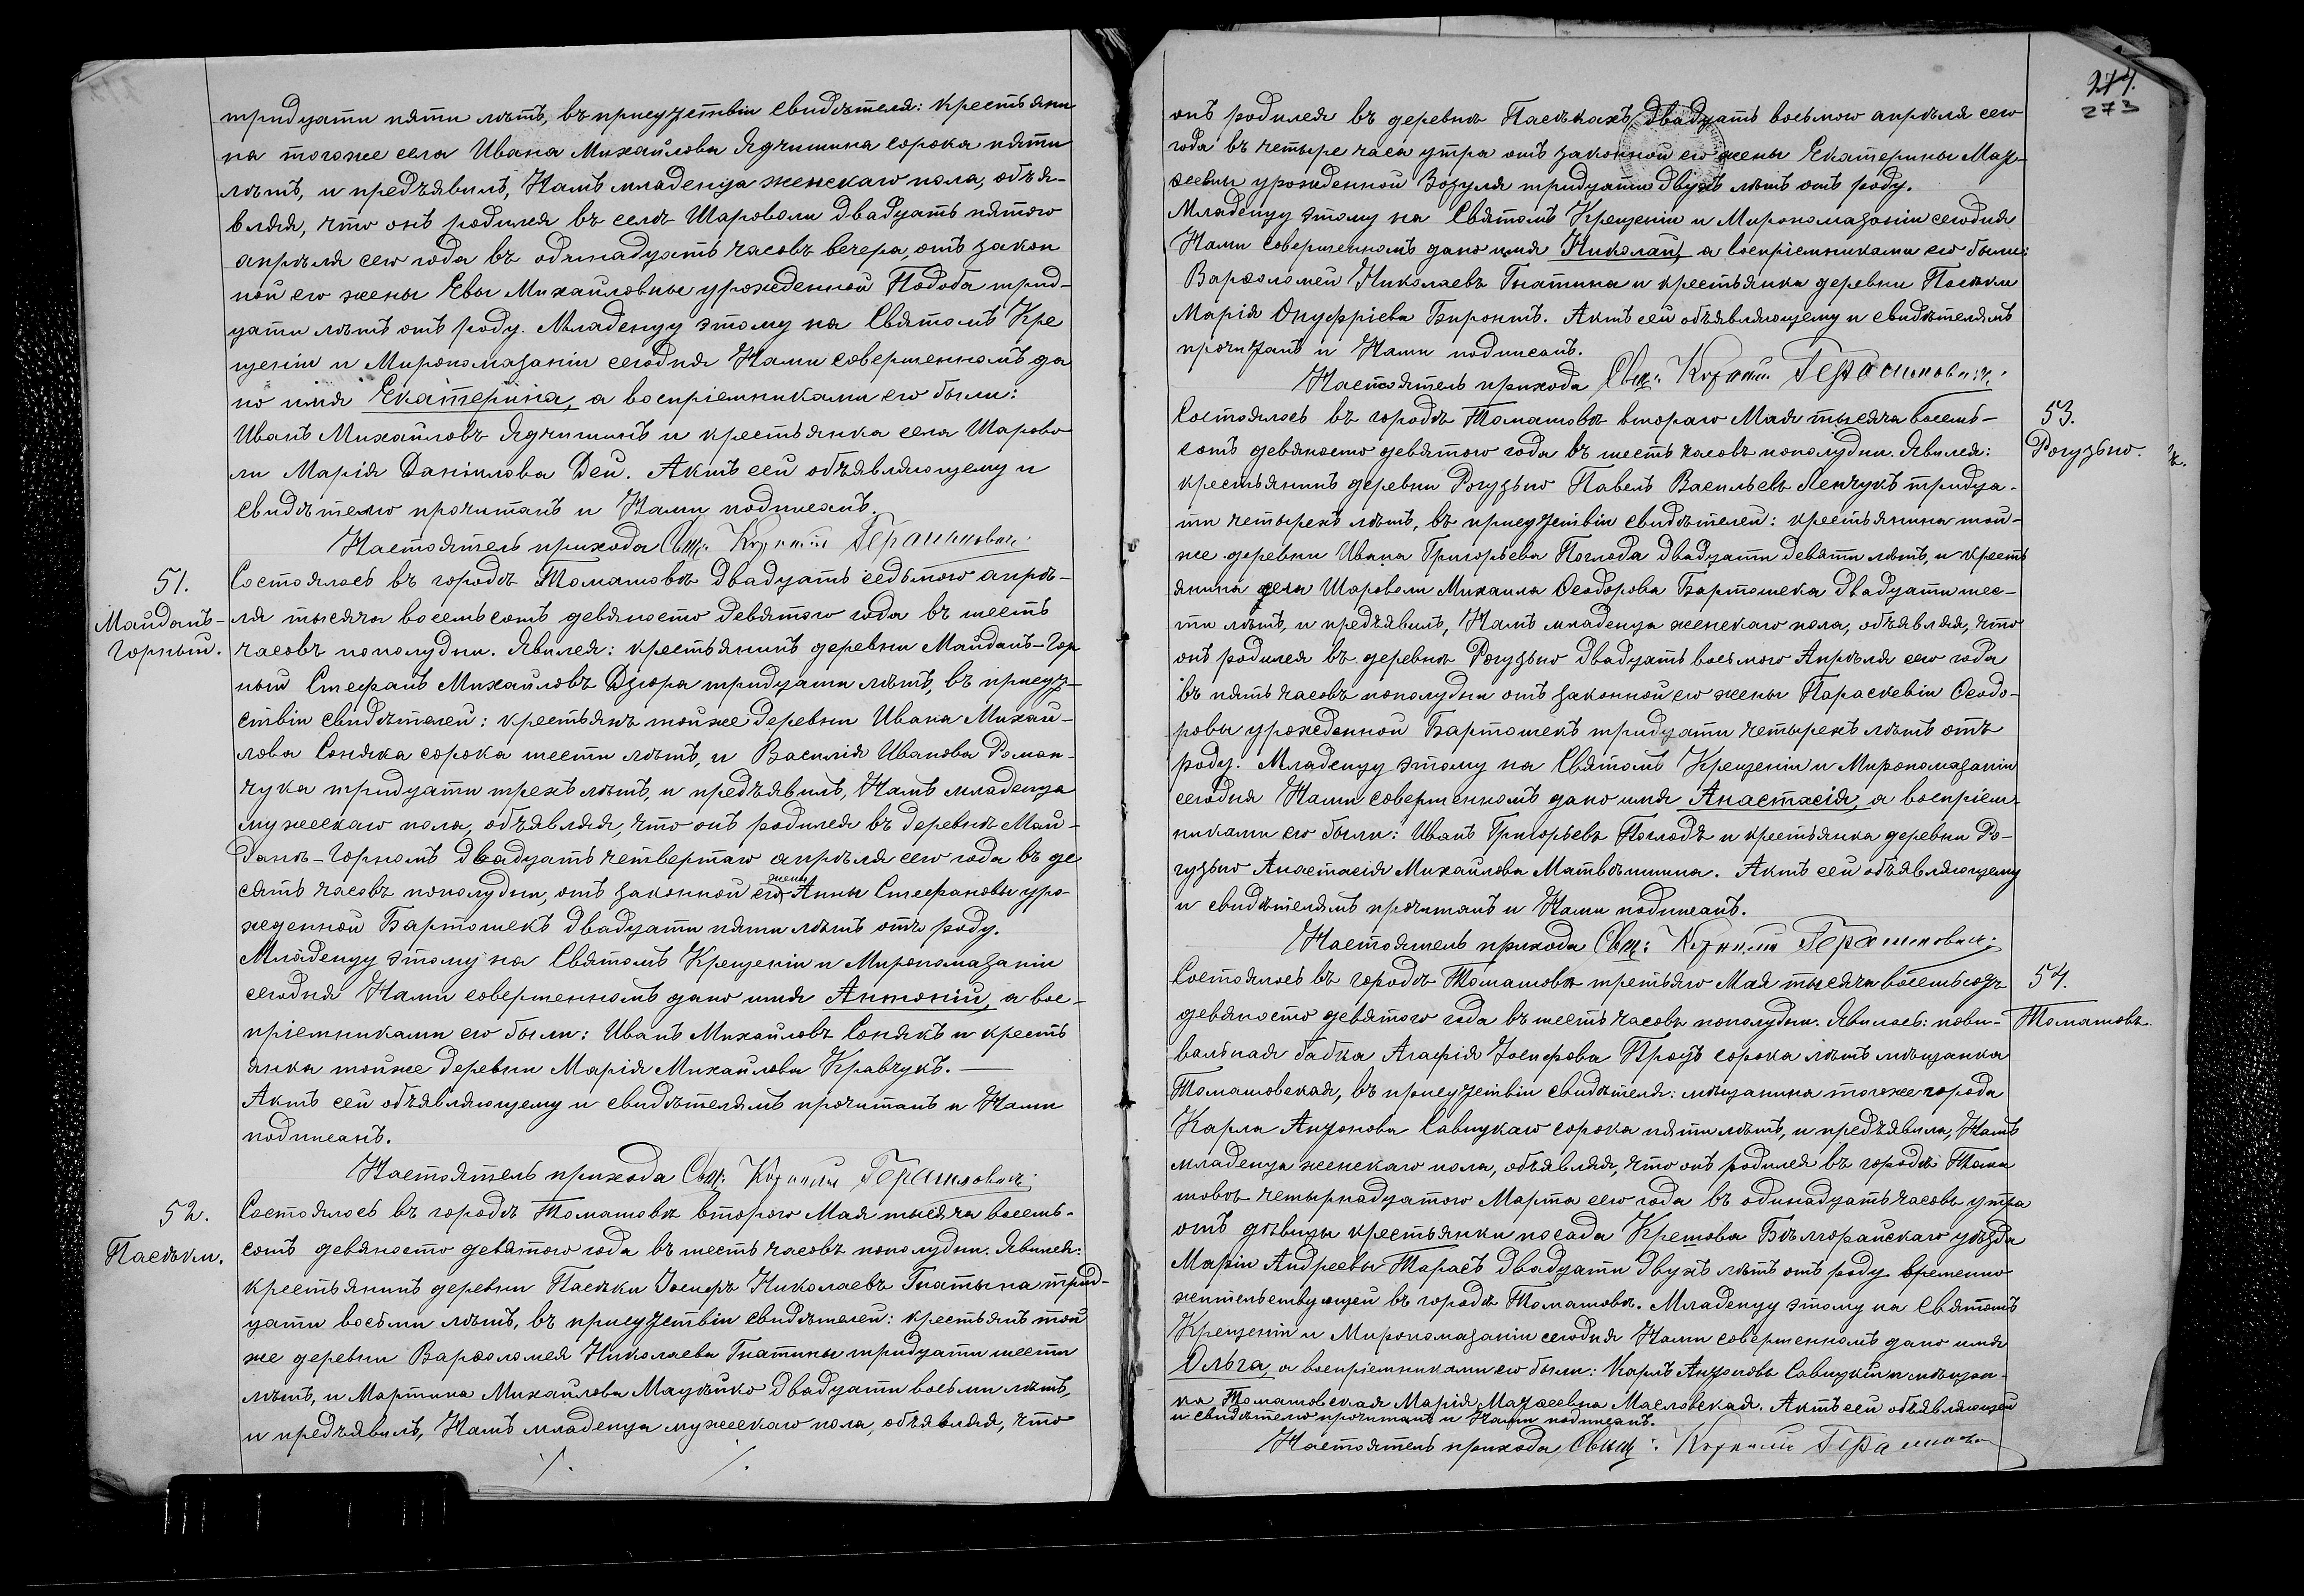 тридцати пяти лѣтъ, въ присутствіи свидѣтеля: крестьяни
на тогоже села Ивана Михайлова Ядчишина сорока пяти
лѣтъ, и предъявилъ, Намъ младенца женскаго пола, объя-
вляя, что онъ родился въ селѣ Шароволи двадцать пятого
апрѣля сего года въ одинадцать часовъ вечера, отъ закон
ной его жены Евы Михайловны урожденной Подоба трид-
цати лѣтъ отъ роду. Младенцу этому на Святомъ Кре
щеніи и Миропомазаніи сегодня Нами совершенномъ да
но имя Екатерина, а воспріемниками его были:
Иванъ Михайловъ Ядчишинъ и крестьянка села Шарово
ли Марія Даніилова Дей. Актъ сей объявляющему и
свидѣтелю прочитанъ и Нами подписанъ.
Настоятель прихода Свщ. Корнилій Герасимовичъ
51.
Майданъ-
Горный.
Состоялось въ городѣ Томашовѣ двадцать седьмого апрѣ-
ля тысяча восемьсотъ девяносто девятого года въ шесть
часовъ пополудни. Явился: крестьянинъ деревни Майданъ-Гор
ный Стефанъ Михайловъ Дзюра тридцати лѣтъ, въ присут-
ствіи свидѣтелей: крестьянъ тойже деревни Ивана Михай-
лова Соняка сорока шести лѣтъ, и Василія Иванова Роман-
чука тридцати трехъ лѣтъ, и предъявилъ, Намъ младенца
мужескаго пола, объявляя, что онъ родился въ деревнѣ Май-
данѣ-Горномъ двадцать четвертаго апрѣля сего года въ де
сять часовъ пополудни, отъ законной его жены Анны Стефановы уро-
жденной Бартошекъ двадцати пяти лѣтъ отъ роду.
Младенцу этому на Святомъ Крещеніи и Миропомазаніи
сегодня Нами совершенномъ дано имя Антоній, а вос-
пріемниками его были: Иванъ Михайловъ Сонякъ и кресть
янка тойже деревни Марія Михайлова Кравчукъ.
Актъ сей объявляющему и свидѣтелямъ прочитанъ и Нами
подписанъ.
Настоятель прихода Свщ. Корнилій Герасимовичъ
52.
Пасѣки.
Состоялось въ городѣ Томашовѣ второго Мая тысяча восемь-
сотъ девяносто девятого года въ шесть часовъ пополудни. Явился:
крестьянинъ деревни Пасѣки Іосифъ Николаевъ Гнатына трид-
цати восьми лѣтъ, въ присутствіи свидѣтелей: крестьянъ той
же деревни Варѳоломея Николаева Гнатины тридцати шести
лѣтъ, и Мартина Михайлова Мацѣйко двадцати восьми лѣтъ,
и предъявилъ, Намъ младенца мужескаго пола, объявляя, что
274.
273
онъ родился въ деревнѣ Пасѣкахъ двадцать восьмого апрѣля сего
года въ четыре часа утра отъ законной его жены Екатерины Мат-
ѳеевны урожденной Возуля тридцати двухъ лѣтъ отъ роду.
Младенцу этому на Святомъ Крещеніи и Миропомазаніи сегодня
Нами совершенномъ дано имя Николай, а воспріемниками его были:
Варѳоломей Николаевъ Гнатина и крестьянка деревни Пасѣки
Марія Онуфріева Биронтъ. Актъ сей объявляющему и свидѣтелямъ
прочитанъ и Нами подписанъ.
Настоятель прихода Свщ. Корнилій Герасимовичъ
53.
Рогузьно.
Состоялось въ городѣ Томашовѣ второго Мая тысяча восемь-
сотъ девяносто девятого года въ шесть часовъ пополудни. Явился:
крестьянинъ деревни Рогузьно Павелъ Васильевъ Ленчукъ тридца-
ти четырехъ лѣтъ, въ присутствіи свидѣтелей: крестьянина той-
же деревни Ивана Григорьева Поглода двадцати девяти лѣтъ, и кресть
янина села Шароволи Михаила Ѳеодорова Бартошека двадцати шес-
ти лѣтъ, и предъявилъ, Намъ младенца женскаго пола, объявляя, что
онъ родился въ деревнѣ Рогузьно двадцать восьмого Апрѣля сего года
въ пять часовъ пополудни отъ законной его жены Параскевіи Ѳеодо-
ровы урожденной Бартошекъ тридцати четырехъ лѣтъ отъ
роду. Младенцу этому на Святомъ Крещеніи и Миропомазаніи
сегодня Нами совершенномъ дано имя Анастасія, а воспріем-
никами его были: Иванъ Григорьевъ Поглодъ и крестьянка деревни Ро-
гузьно Анастасія Михайлова Матвѣишина. Актъ сей объявляющему
и свидѣтелямъ прочитанъ и Нами подписанъ.
Настоятель прихода Свщ. Корнилій Герасимовичъ
54.
Томашовъ.
Состоялось въ городѣ Томашовѣ третьяго Мая тысяча восемьсотъ
девяносто девятого года въ шесть часовъ пополудни. Явилась: пови-
вальная бабка Агафія Іосифова Процъ сорока лѣтъ мѣщанка
Томашовская, въ присутствіи свидѣтеля: мѣщанина тогоже города
Карла Антонова Савицкаго сорока пяти лѣтъ, и предъявила, Намъ
младенца женскаго пола, объявляя, что онъ родился въ городѣ Тома
шовѣ четырнадцатого Марта сего года въ одинадцать часовъ утра
отъ дѣвицы крестьянки посада Крешова Бѣлгорайскаго уѣзда
Маріи Андреевы Тарасъ двадцати двухъ лѣтъ отъ роду временно
жительствующей въ городѣ Томашовѣ. Младенцу этому на Святомъ
Крещеніи и Миропомазаніи сегодня Нами совершенномъ дано имя
Ольга, а воспріемниками его были: Карлъ Антоновъ Савицкій и мѣщан-
ка Томашовская Марія Матѳеевна Масловская. Актъ сей объявляющей
и свидѣтелю прочитанъ и Нами подписанъ.
Настоятель прихода Свящ. Корнилій Герасимовичъ